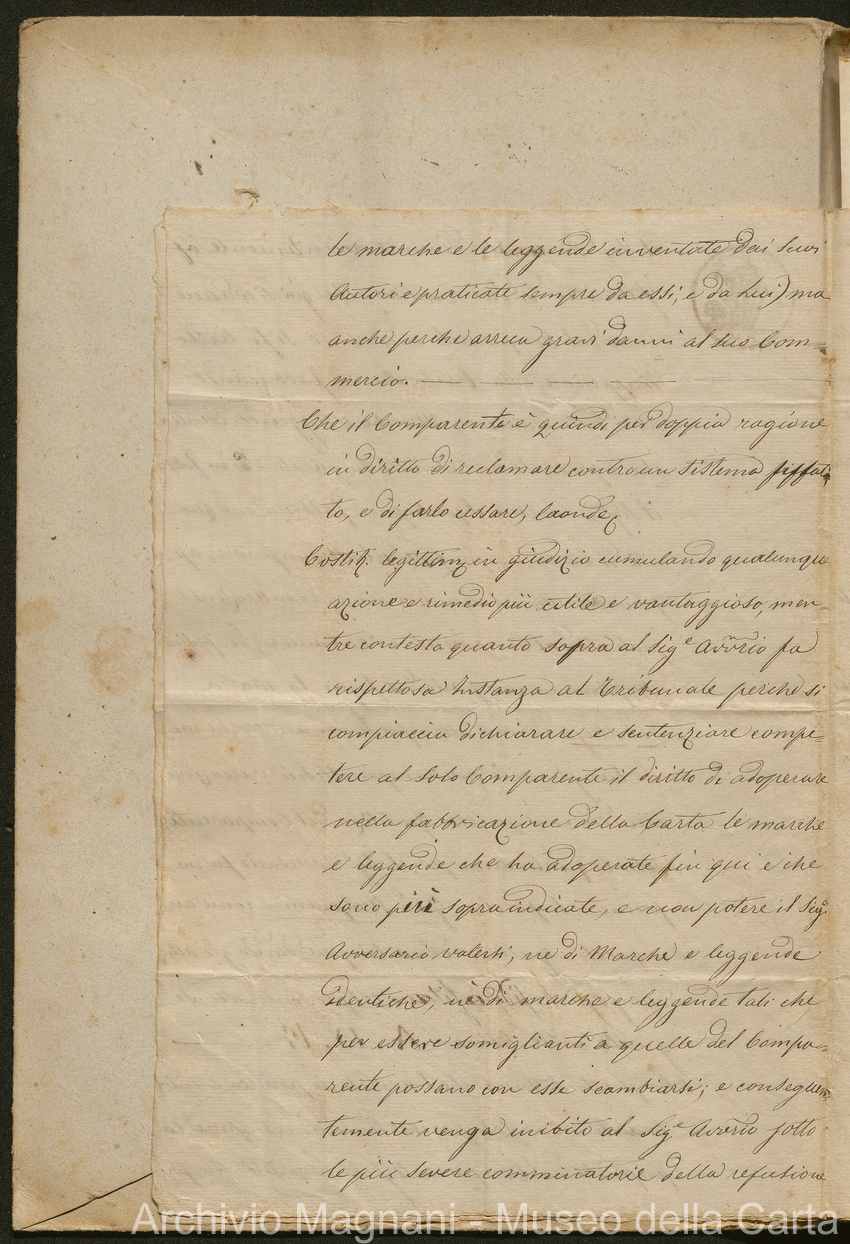 le marche e le leggende inventate dai suoi
Autori e praticate sempre da essi, e da Lui) ma
anche perche arreca gravi danni al suo Com=
mercio.
Che il Comparente è quindi per doppia ragione
in diritto di reclamare contro un sistema siffat
to, e di farlo cessare, laonde
Costit. legittim. in giudizio cumulando qualunque
azione e rimedio più utile e vantaggioso, men=
tre contesta quanto sopra al Sig.e Avv̅rio fa
rispettosa Instanza al Tribunale perche si
compiaccia dichiarare e sentenziare compe=
tere al solo Comparente il diritto di adoperare
nella fabbricazione della Carta le marche
e leggende che ha adoperate fin qui e che
sono più sopra indicate, e non potere il Sig.
Avversario valersi, ne di Marche e leggende
identiche, nè di marche e leggende tali che
per essere somiglianti a quelle del Compa=
rente possano con esse scambiarsi; e conseguen
temente venga inibito al Sig.e Avv̅rio sotto
le più severe comminatorie della refusione
Archivio Magnani - Museo della Carta